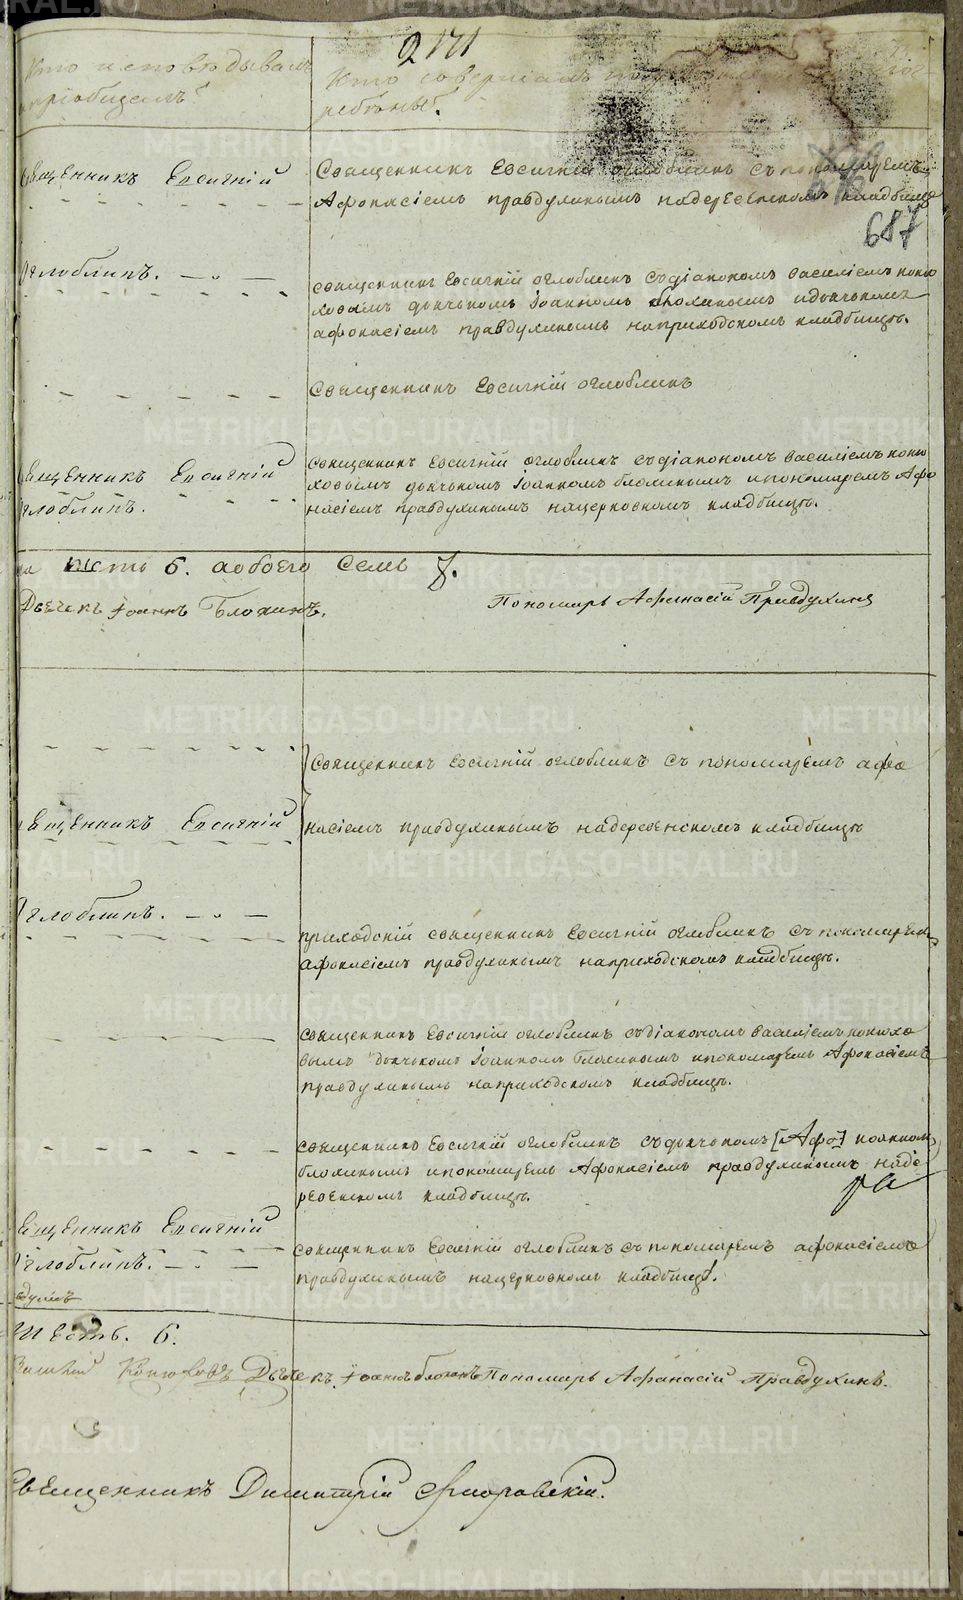 2171
Кто исповѣдывалъ
и пріобщалъ.
Кто совершалъ погребеніе и гдѣ по-
гребены.
687
Священникъ Евсигній
Священникъ Евсигній оглоблинъ съ пономаремъ
Афонасіемъ правдухинымъ надеревенскомъ кладбищѣ
Оглоблинъ.
священникъ Евсигній оглоблинъ съ діакономъ василіемъ коню
ховымъ дьячькомъ Іоанномъ блохинымъ идьячькомъ
афонасіемъ правдухинымъ наприходскомъ кладбищѣ.
Священникъ Евсигній оглоблинъ
Священникъ Евсигній
Оглоблинъ.
священникъ Евсигній оглоблинъ съ діакономъ василіемъ коню
ховымъ дьячькомъ Іоанномъ блохинымъ ипономаремъ Афо
насіемъ правдухинымъ нацерковномъ кладбищѣ.
шесть 6. аобоего Семь 7.
Дьячекъ Іоаннъ Блохинъ. Пономарь Афанасій Правдухинъ
священникъ Евсигній оглоблинъ съ пономаремъ афо
Священникъ Евсигній
насіемъ правдухинымъ надеревенскомъ кладбищѣ
Оглоблинъ.
приходскій священникъ Евсигній оглоблинъ съ пономаремъ
афонасіемъ правдухинымъ наприходскомъ кладбищѣ.
священникъ Евсигній оглоблинъ съ діакономъ василіемъ конюхо
вымъ дьячькомъ Іоанномъ блохинымъ ипономаремъ Афонасіемъ
правдухинымъ наприходскомъ кладбищѣ.
священникъ Евсигній оглоблинъ съ дьячькомъ [Афо] іоанномъ
блохинымъ ипономаремъ Афонасіемъ правдухинымъ наде
ревенскомъ кладбищѣ.
Священникъ Евсигній
Оглоблинъ.
священникъ Евсигній оглоблинъ съ пономаремъ афонасіемъ
правдухинымъ нацерковномъ кладбищѣ.
шесть. 6.
Василій Конюховъ Дьячекъ Іоаннъ блохинъ Пономарь Афанасій Правдухинъ.
Священникъ Димитрій Флоровскій.